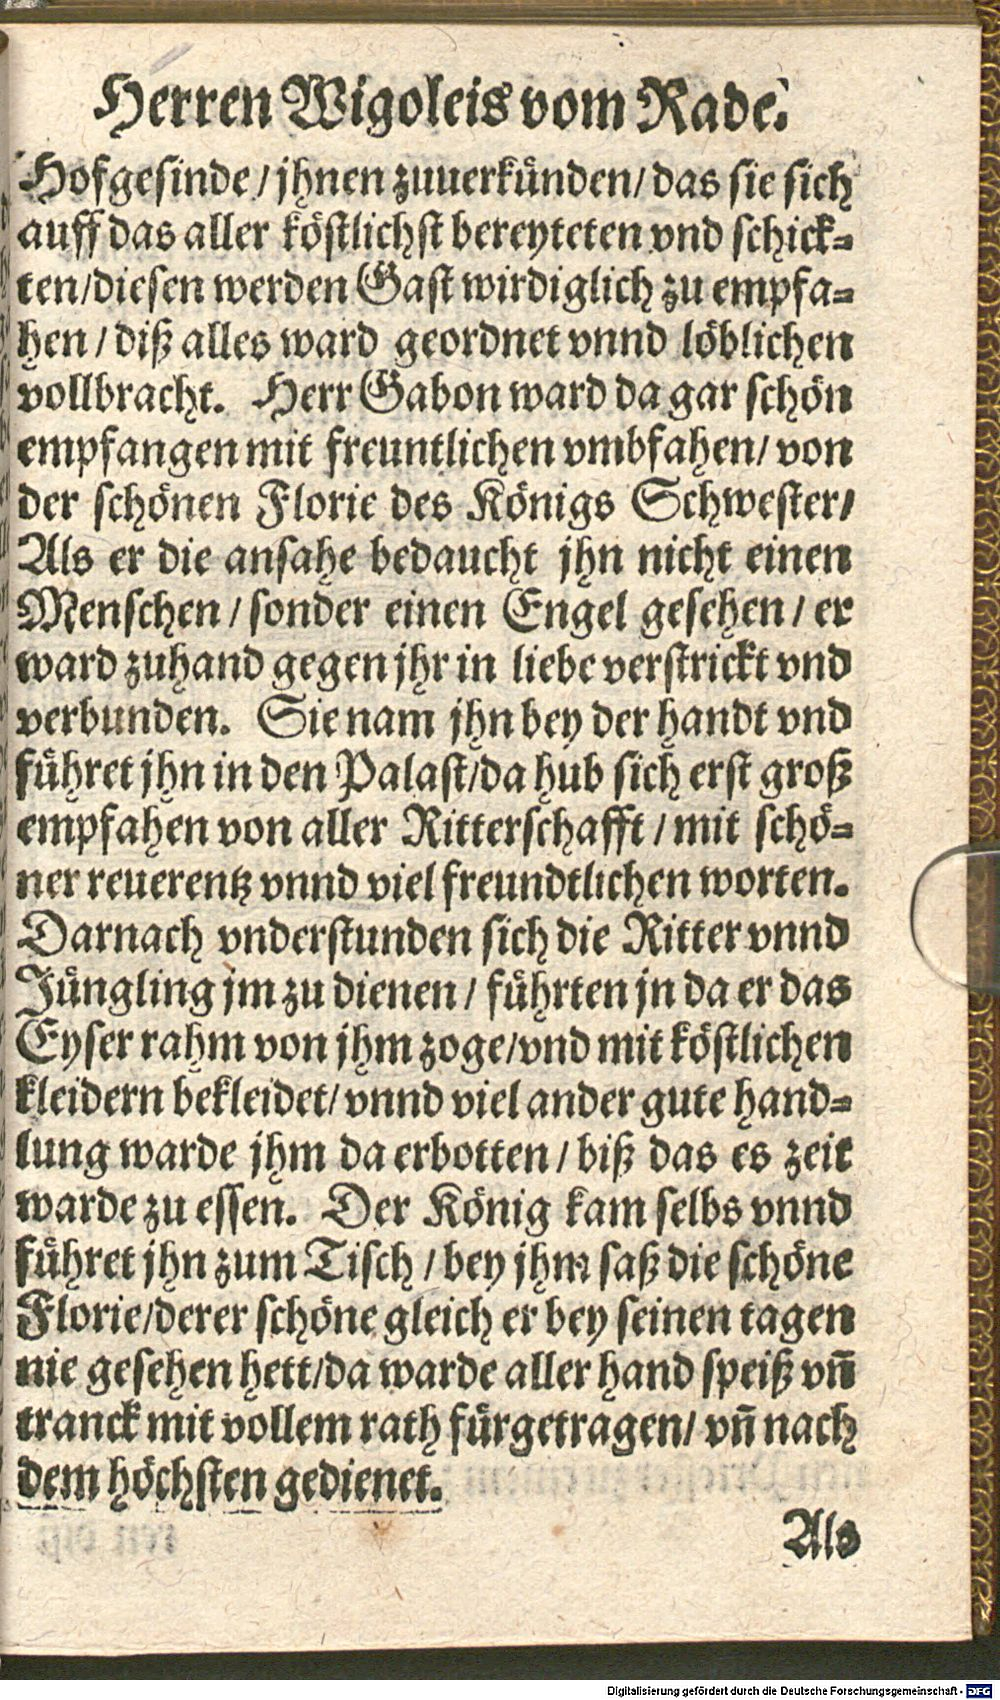 Herren Wigoleis vom Rade.
Hofgesinde / jhnen zuuerkünden / das sie sich
auff das aller köstlichst bereyteten vnd schick-
ten / diesen werden Gast wirdiglich zu empfa-
hen / diß alles ward geordnet vnnd löblichen
vollbracht. Herr Gabon ward da gar schön
empfangen mit freuntlichen vmbfahen / von
der schönen Florie des Königs Schwester /
Als er die ansahe bedaucht jhn nicht einen
Menschen / sonder einen Engel gesehen / er
ward zuhand gegen jhr in liebe verstrickt vnd
verbunden. Sie nam jhn bey der handt vnd
führet jhn in den Palast / da hub sich erst groß
empfahen von aller Ritterschafft / mit schö-
ner reuerentz vnnd viel freundtlichen worten.
Darnach vnderstunden sich die Ritter vnnd
Jüngling jm zu dienen / führten jn da er das
Eyser rahm von jhm zoge / vnd mit köstlichen
kleidern bekleidet / vnnd viel ander gute hand-
lung warde jhm da erbotten / biß das es zeit
warde zu essen. Der König kam selbs vnnd
führet jhn zum Tisch / bey jhm saß die schöne
Florie / derer schöne gleich er bey seinen tagen
nie gesehen hett / da warde aller hand speiß vñ
tranck mit vollem rath fürgetragen / vñ nach
dem höchsten gedienet.
Als
Digitalisierung gefördert durch die Deutsche Forschungsgemeinschaft - DFG